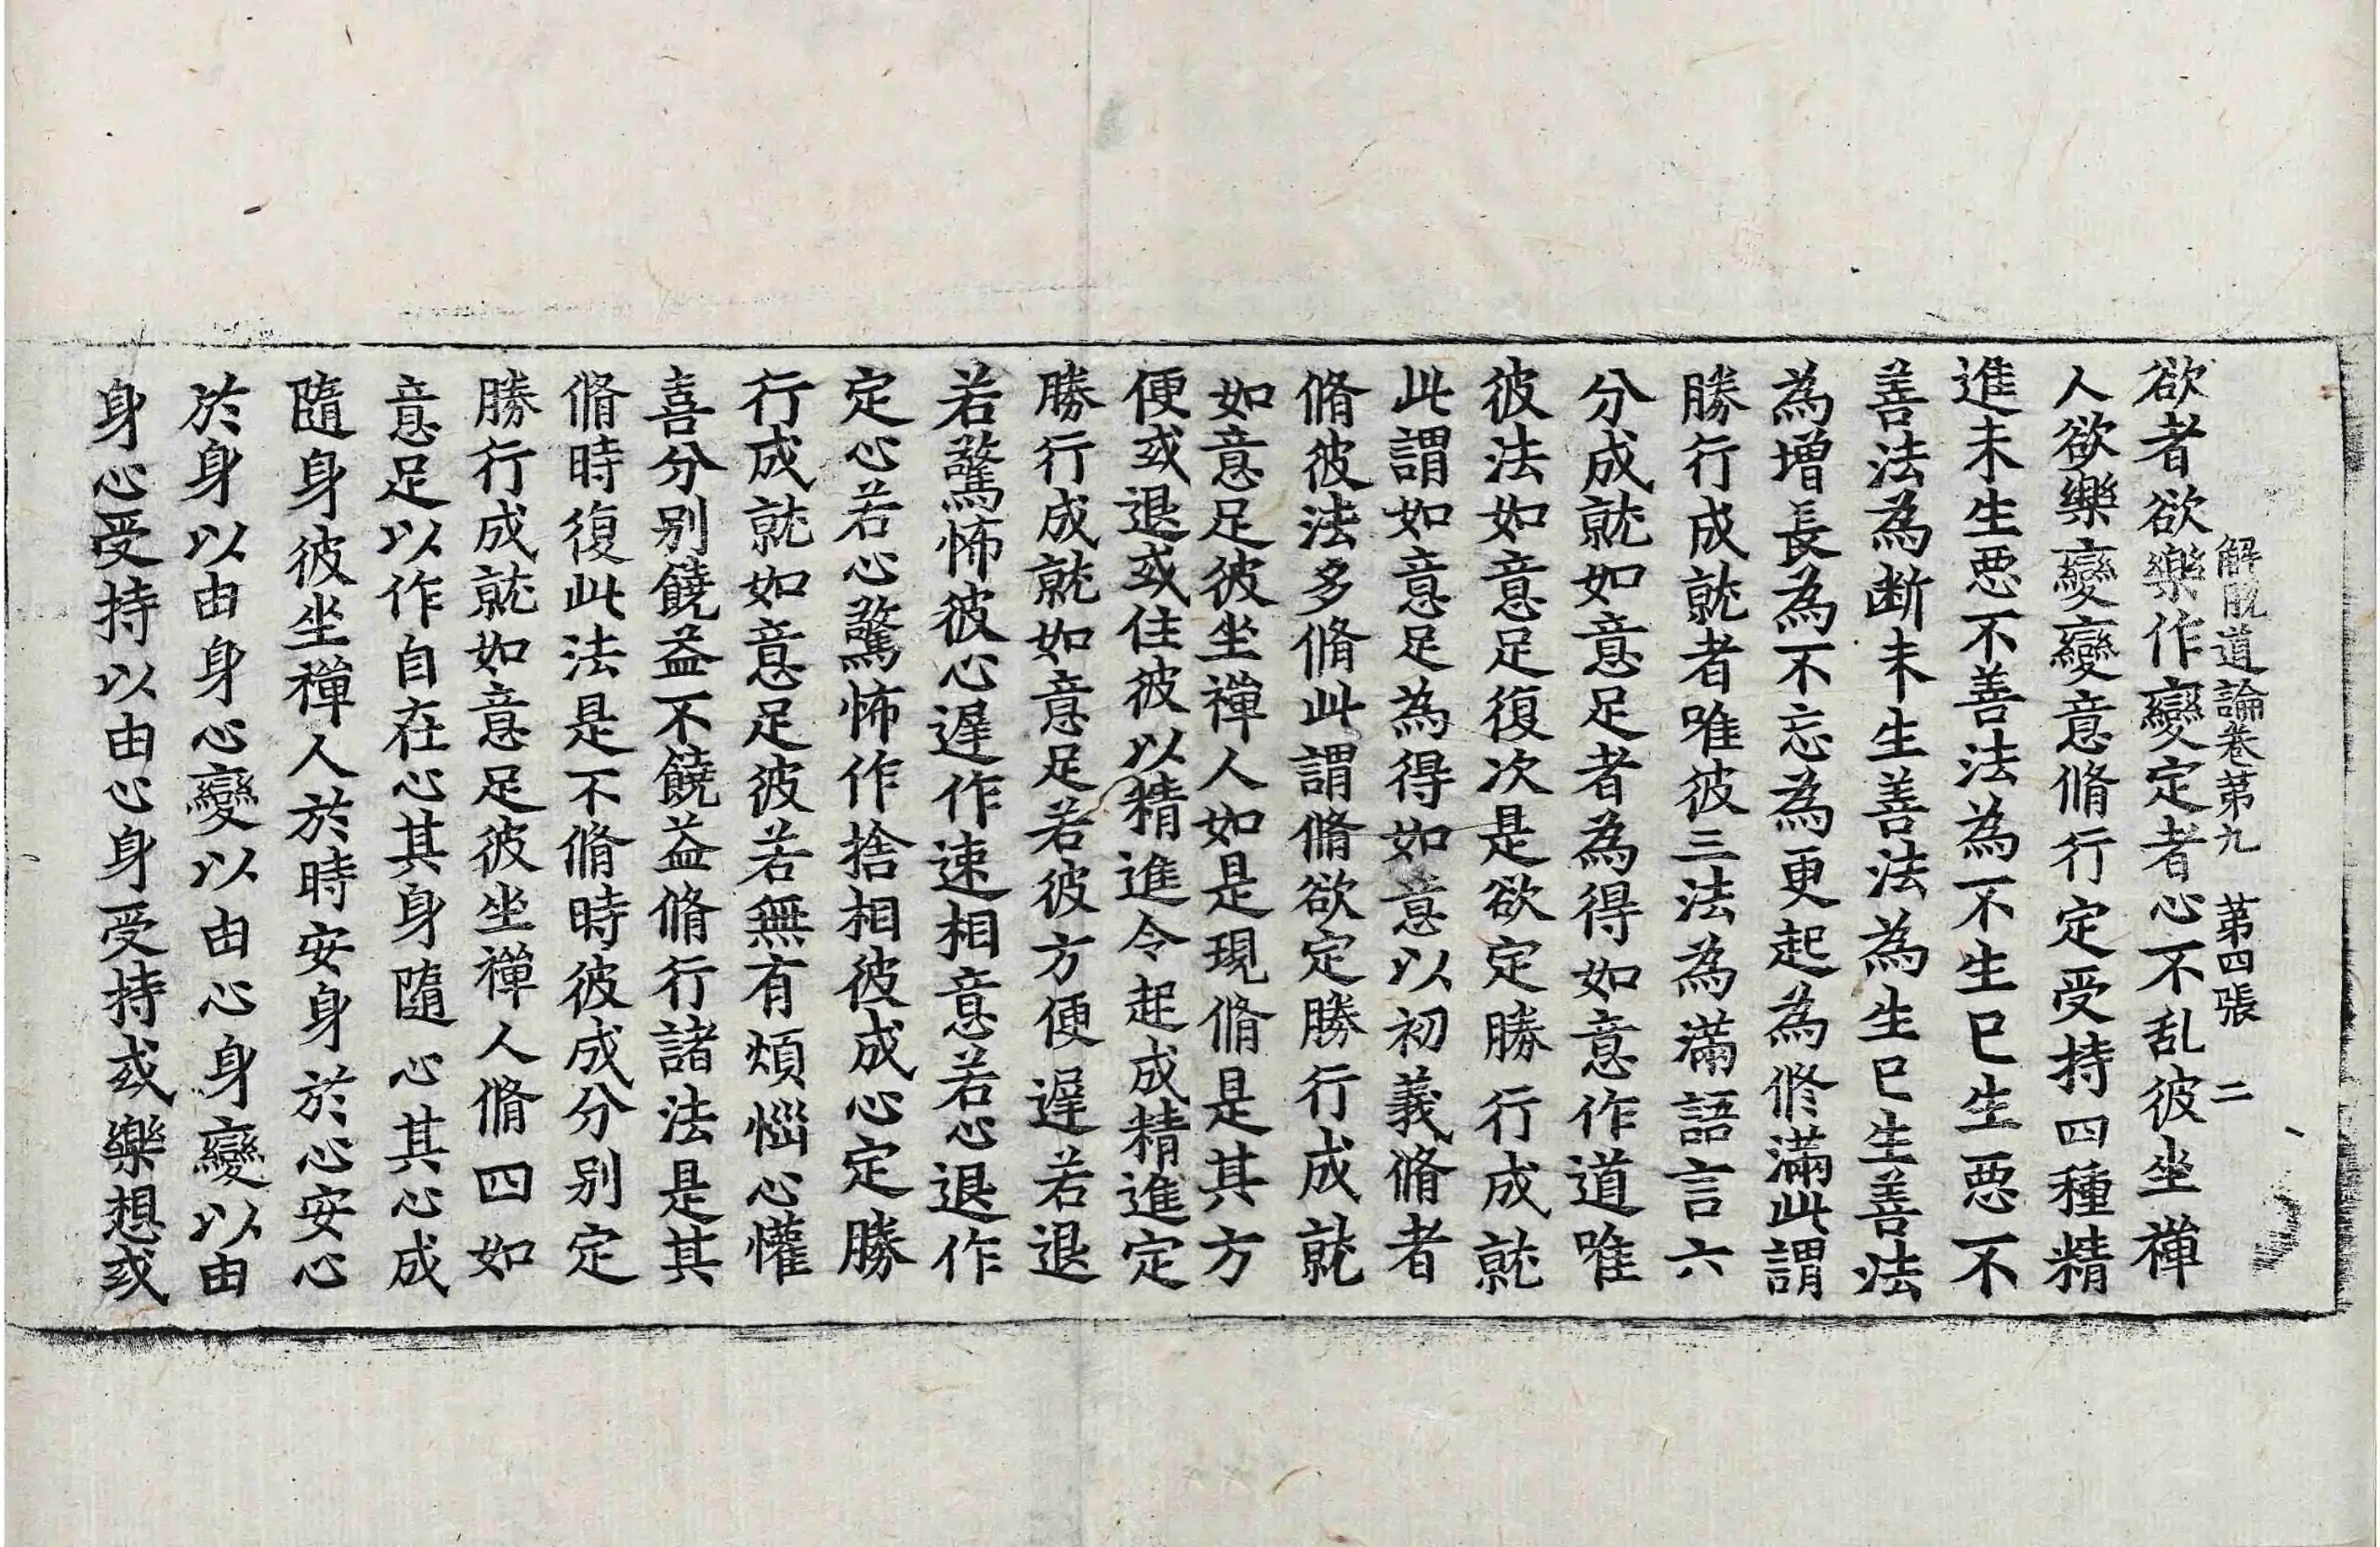 解脫道論卷第九　第四張　二
欲者欲樂作變定者心不乱彼坐禪
人欲樂變變意脩行定受持四種精
進未生悪不善法為不生已生悪不
善法為断未生善法為生已生善法
為增長為不忘為更起為修滿此謂
勝行成就者唯彼三法為滿語言六
分成就如意足者為得如意作道唯
彼法如意足復次是欲定勝行成就
此謂如意足為得如意以初義脩者
脩彼法多脩此謂脩欲定勝行成就
如意足彼坐禪人如是現脩是其方
便或退或住彼以精進令起成精進定
勝行成就如意足若彼方便遲若退
若驚怖彼心遲作速相意若心退作
定心若心驚怖作捨相彼成心定勝
行成就如意足彼若無有煩惱心懽
喜分别饒益不饒益脩行諸法是其
脩時復此法是不脩時彼成分别定
勝行成就如意足彼坐禪人脩四如
意足以作自在心其身隨心其心成
隨身彼坐禪人於時安身於心安心
於身以由身心變以由心身變以由
身心受持以由心身受持或樂想或